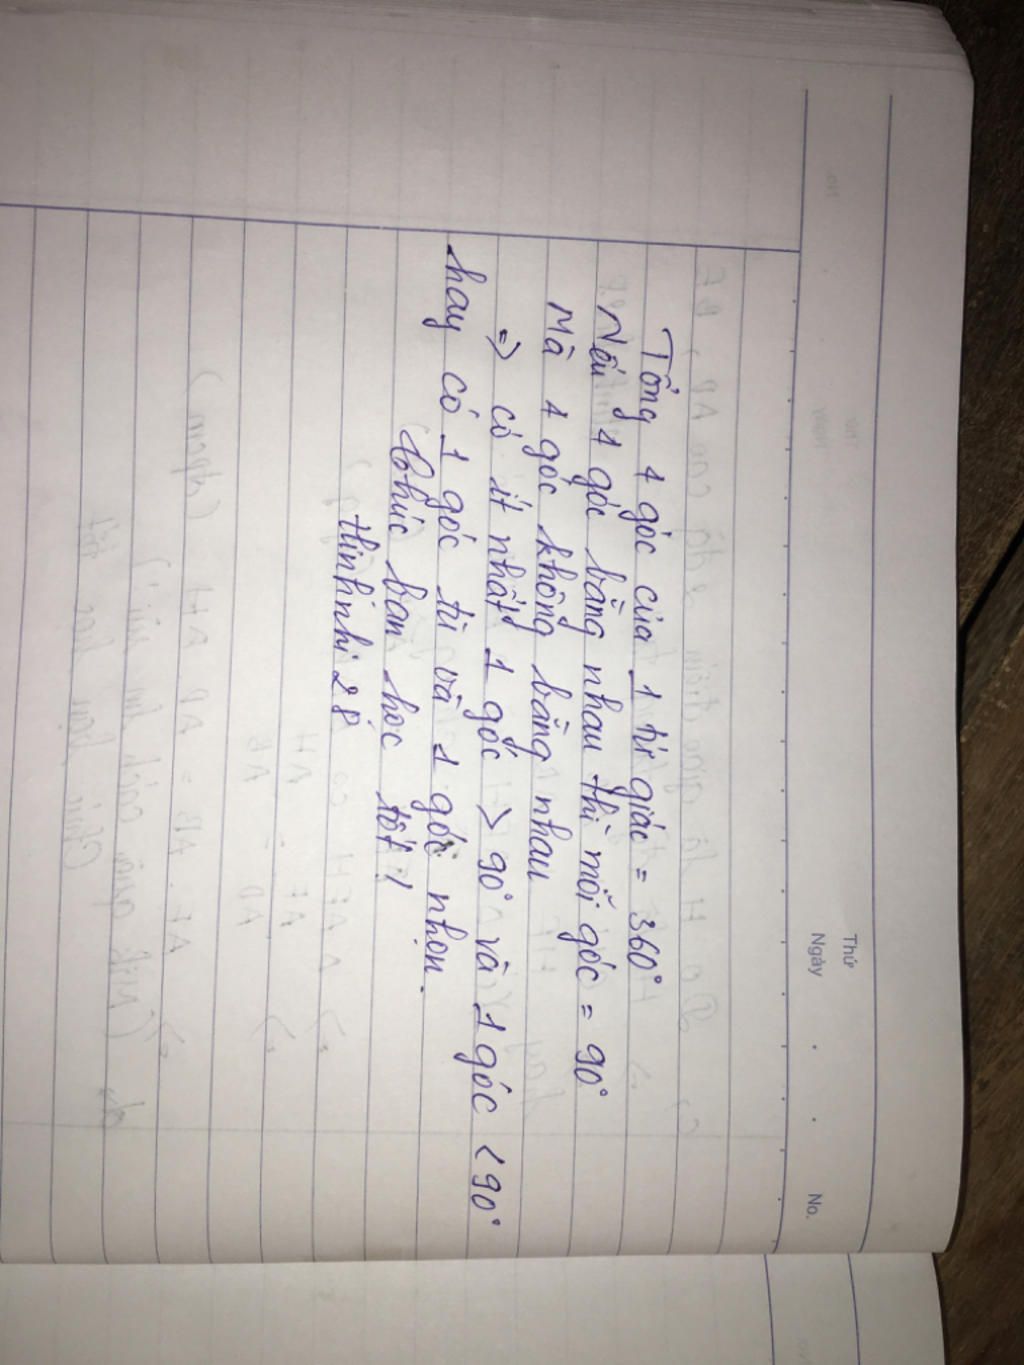 Thứ
Ngày . . No.
Tổng 4 góc của 1 tứ giác = 360°
Nếu 4 góc bằng nhau thì mỗi góc = 90°
Mà 4 góc không bằng nhau
=> có ít nhất 1 góc > 90° và 1 góc < 90°
hay có 1 góc tù và 1 góc nhọn.
Chúc bạn học tốt!
thinhnhi28